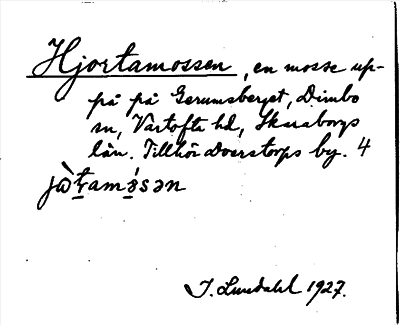 Hjortamossen, en mosse up-
på på Gerumsberget, Dimbo
sn, Vartofta hd, Skaraborgs
län. Tillhör Dverstorps by. 4
jòt̠amó̠sən
J. Lundahl 1927.